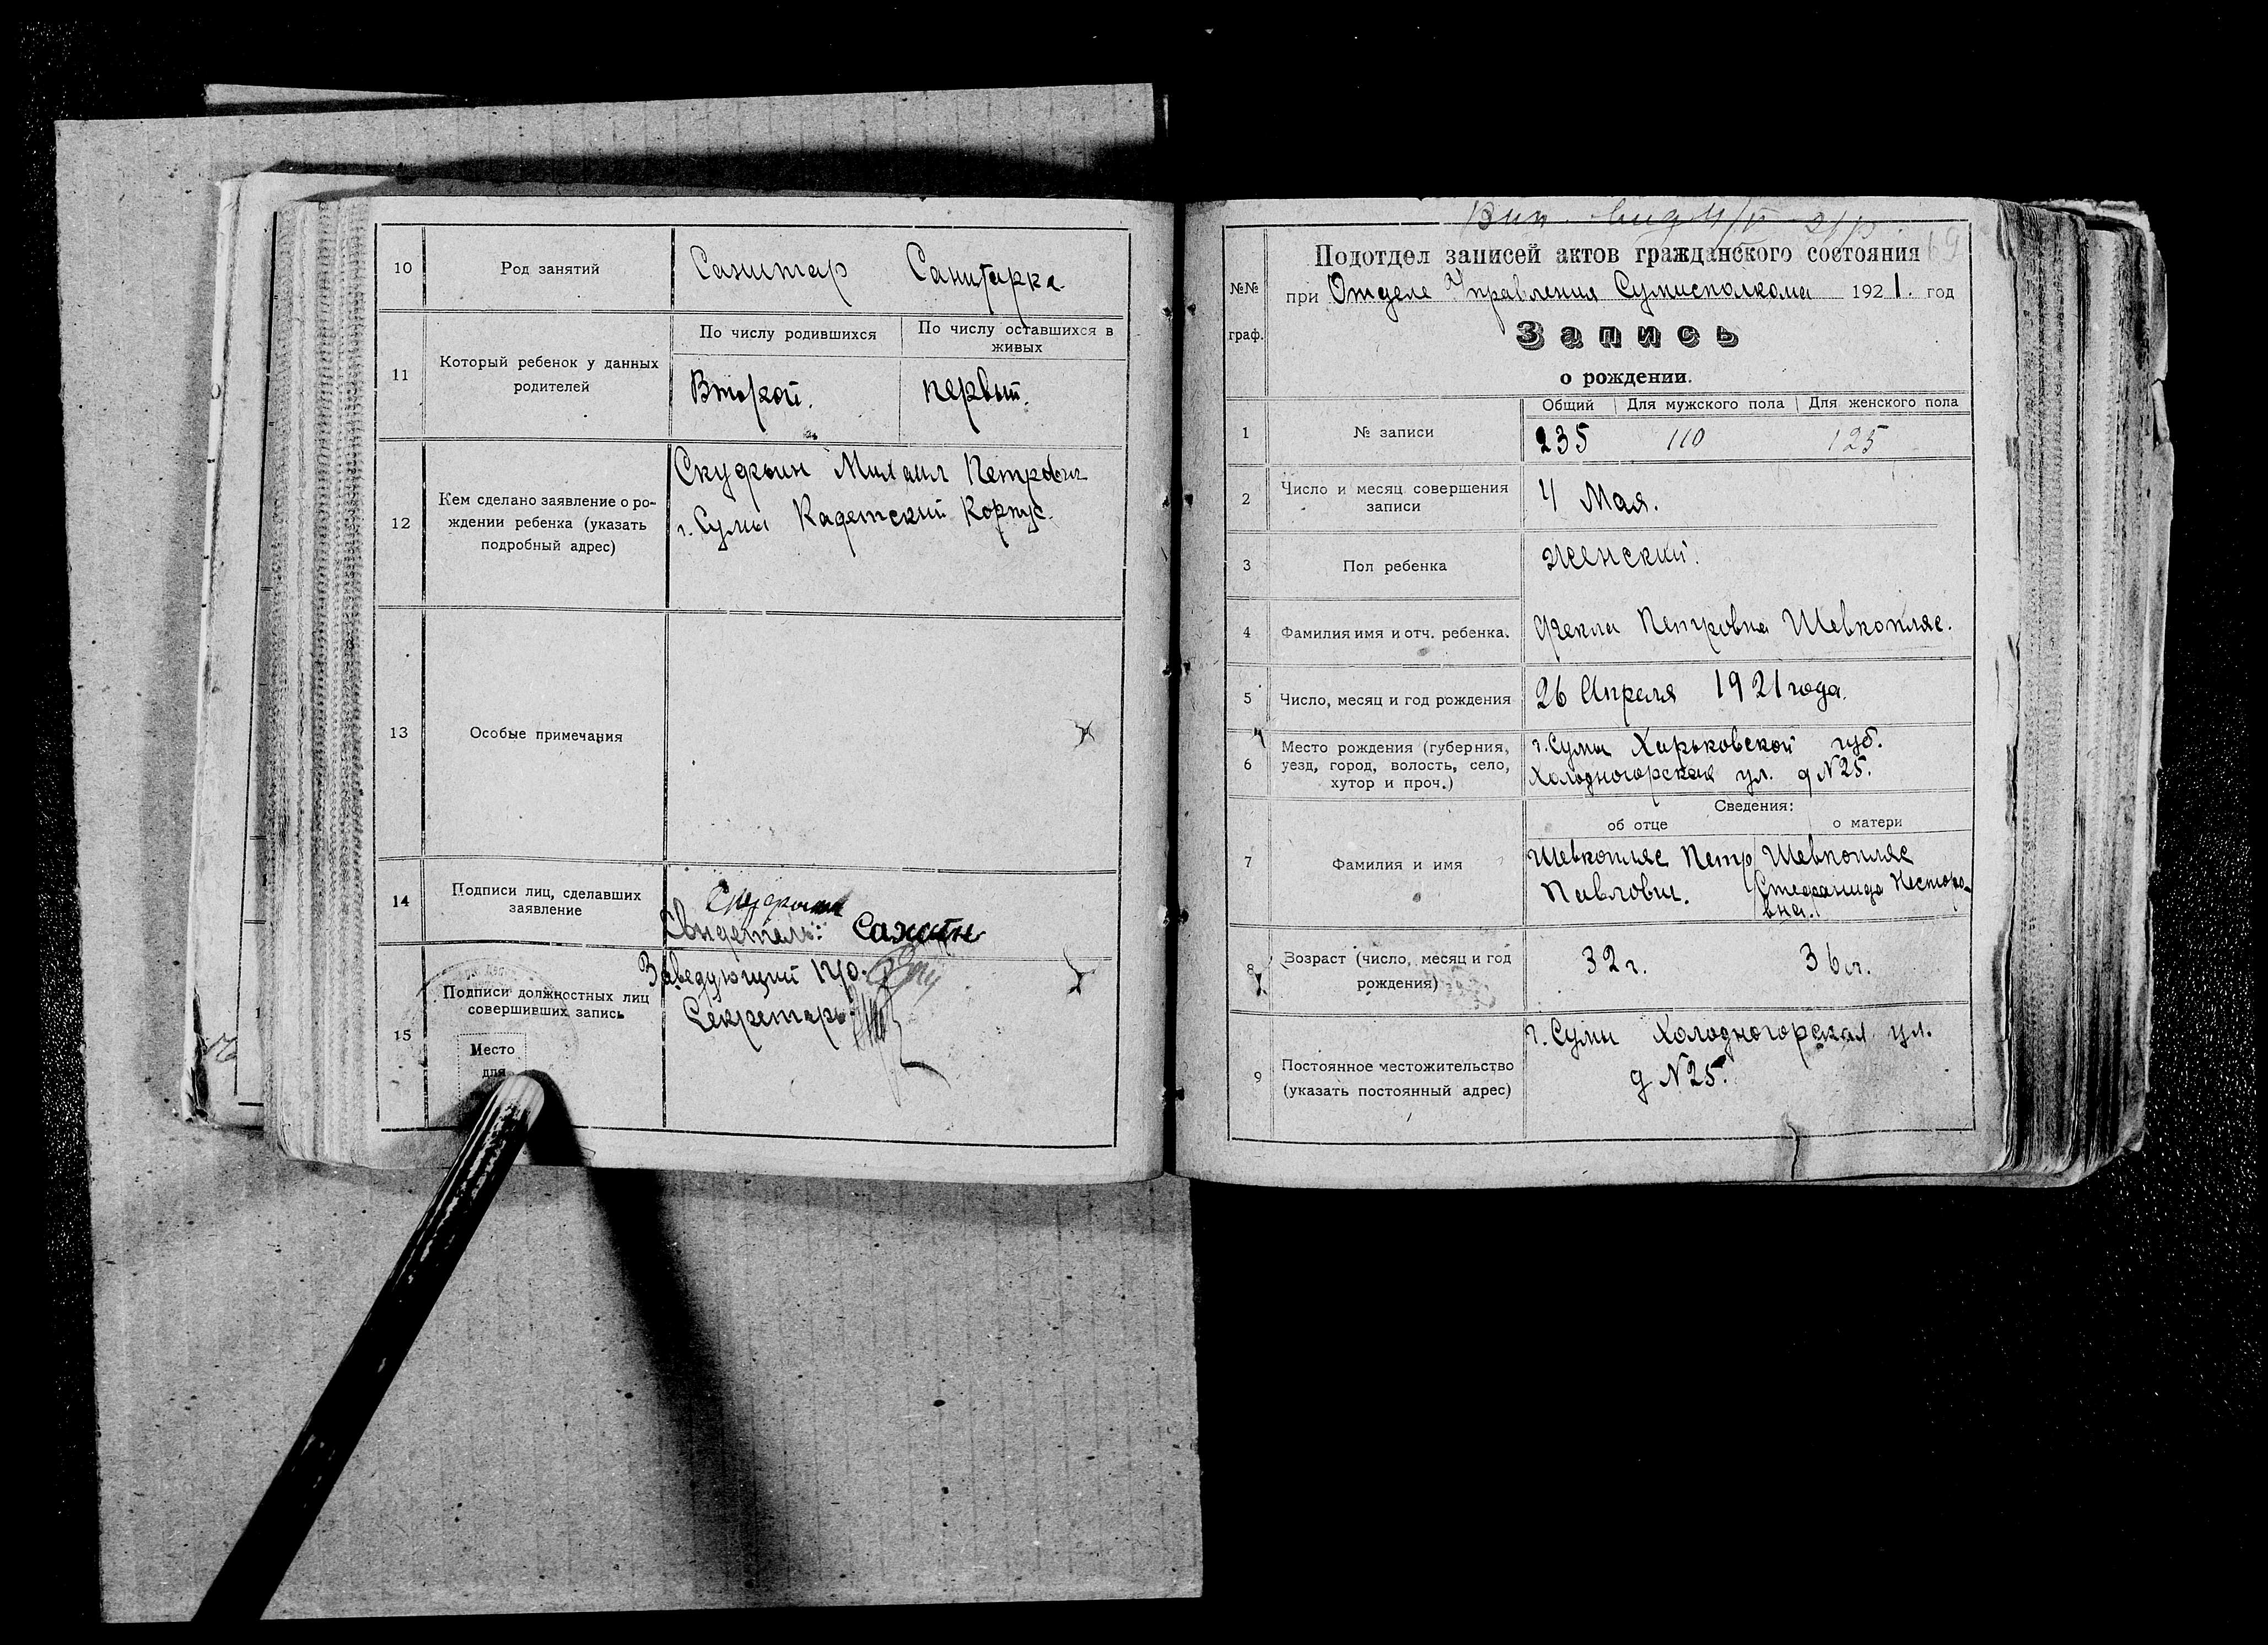 10 Род занятий Санитар Санитарка.
11 Который ребенок у данных родителей
По числу родившихся По числу оставшихся в живых
Второй. первый.
12 Кем сделано заявление о ро-
ждении ребенка (указать
подробный адрес)
Михаил Петрович
г. Сумы Кадетский Корпус.
13 Особые примечания
14 Подписи лиц, сделавших
заявление
Свидетель:
15 Подписи должностных лиц
совершивших запись
Заведующий
Секретарь
Место
для
69
Подотдел записей актов гражданского состояния
№№
граф.
при Отделе Управления Сумисполкома 1921. год
Запись
о рождении.
Общий Для мужского пола Для женского пола
1 № записи 235 110 125
2 Число и месяц совершения
записи
4 Мая.
3 Пол ребенка женский.
4 Фамилия имя и отч. ребенка. Фекла Петровна Шевкопляс.
5 Число, месяц и год рождения 26 Апреля 1921 года.
6 Место рождения (губерния,
уезд, город, волость, село,
хутор и проч.)
г. Сумы Харьковской губ.
Холодногорская ул. д №25.
Сведения:
об отце о матери
7 Фамилия и имя
Шевкопляс Петр
Павлович.
Шевкопляс
Стефанида Несторо-
вна.
8 Возраст (число, месяц и год
рождения)
32 г. 36 л.
9 Постоянное местожительство
(указать постоянный адрес)
г. Сумы Холодногорская ул.
д №25.